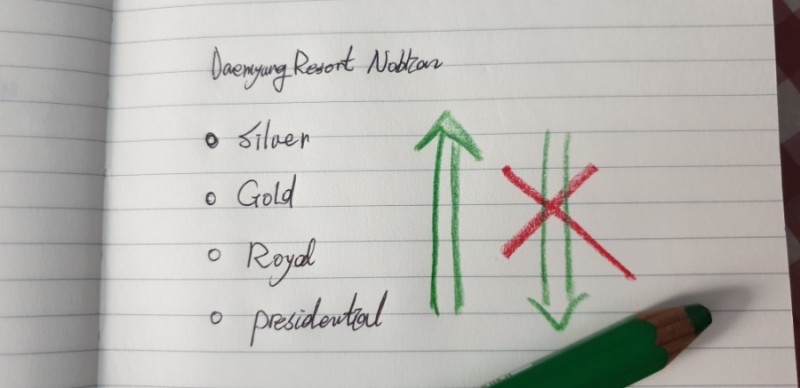 Daemyung Resort Noblian
Silver
Gold
Royal
presidential